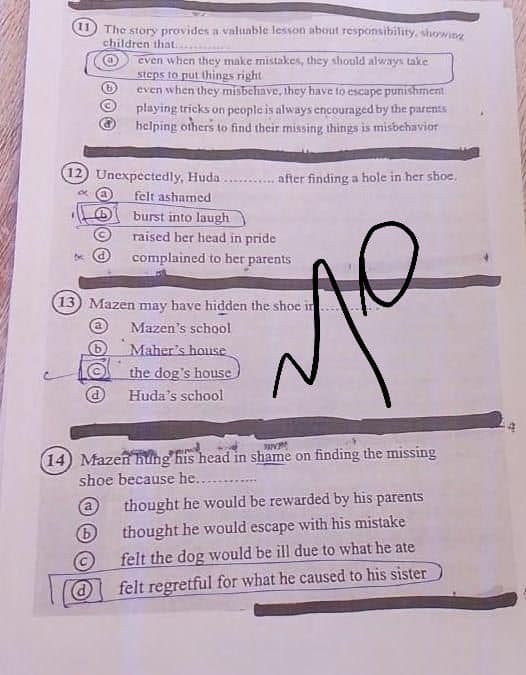 11 The story provides a valuable lesson about responsibility, showing
children that............
a even when they make mistakes, they should always take
steps to put things right
b even when they misbehave, they have to escape punishment
c playing tricks on people is always encouraged by the parents
d helping others to find their missing things is misbehavior
12 Unexpectedly, Huda ........... after finding a hole in her shoe.
a felt ashamed
b burst into laugh
c raised her head in pride
d complained to her parents
13 Mazen may have hidden the shoe in............
a Mazen's school
b Maher's house
c the dog's house
d Huda's school
14 Mazen hung his head in shame on finding the missing
shoe because he............
a thought he would be rewarded by his parents
b thought he would escape with his mistake
c felt the dog would be ill due to what he ate
d felt regretful for what he caused to his sister